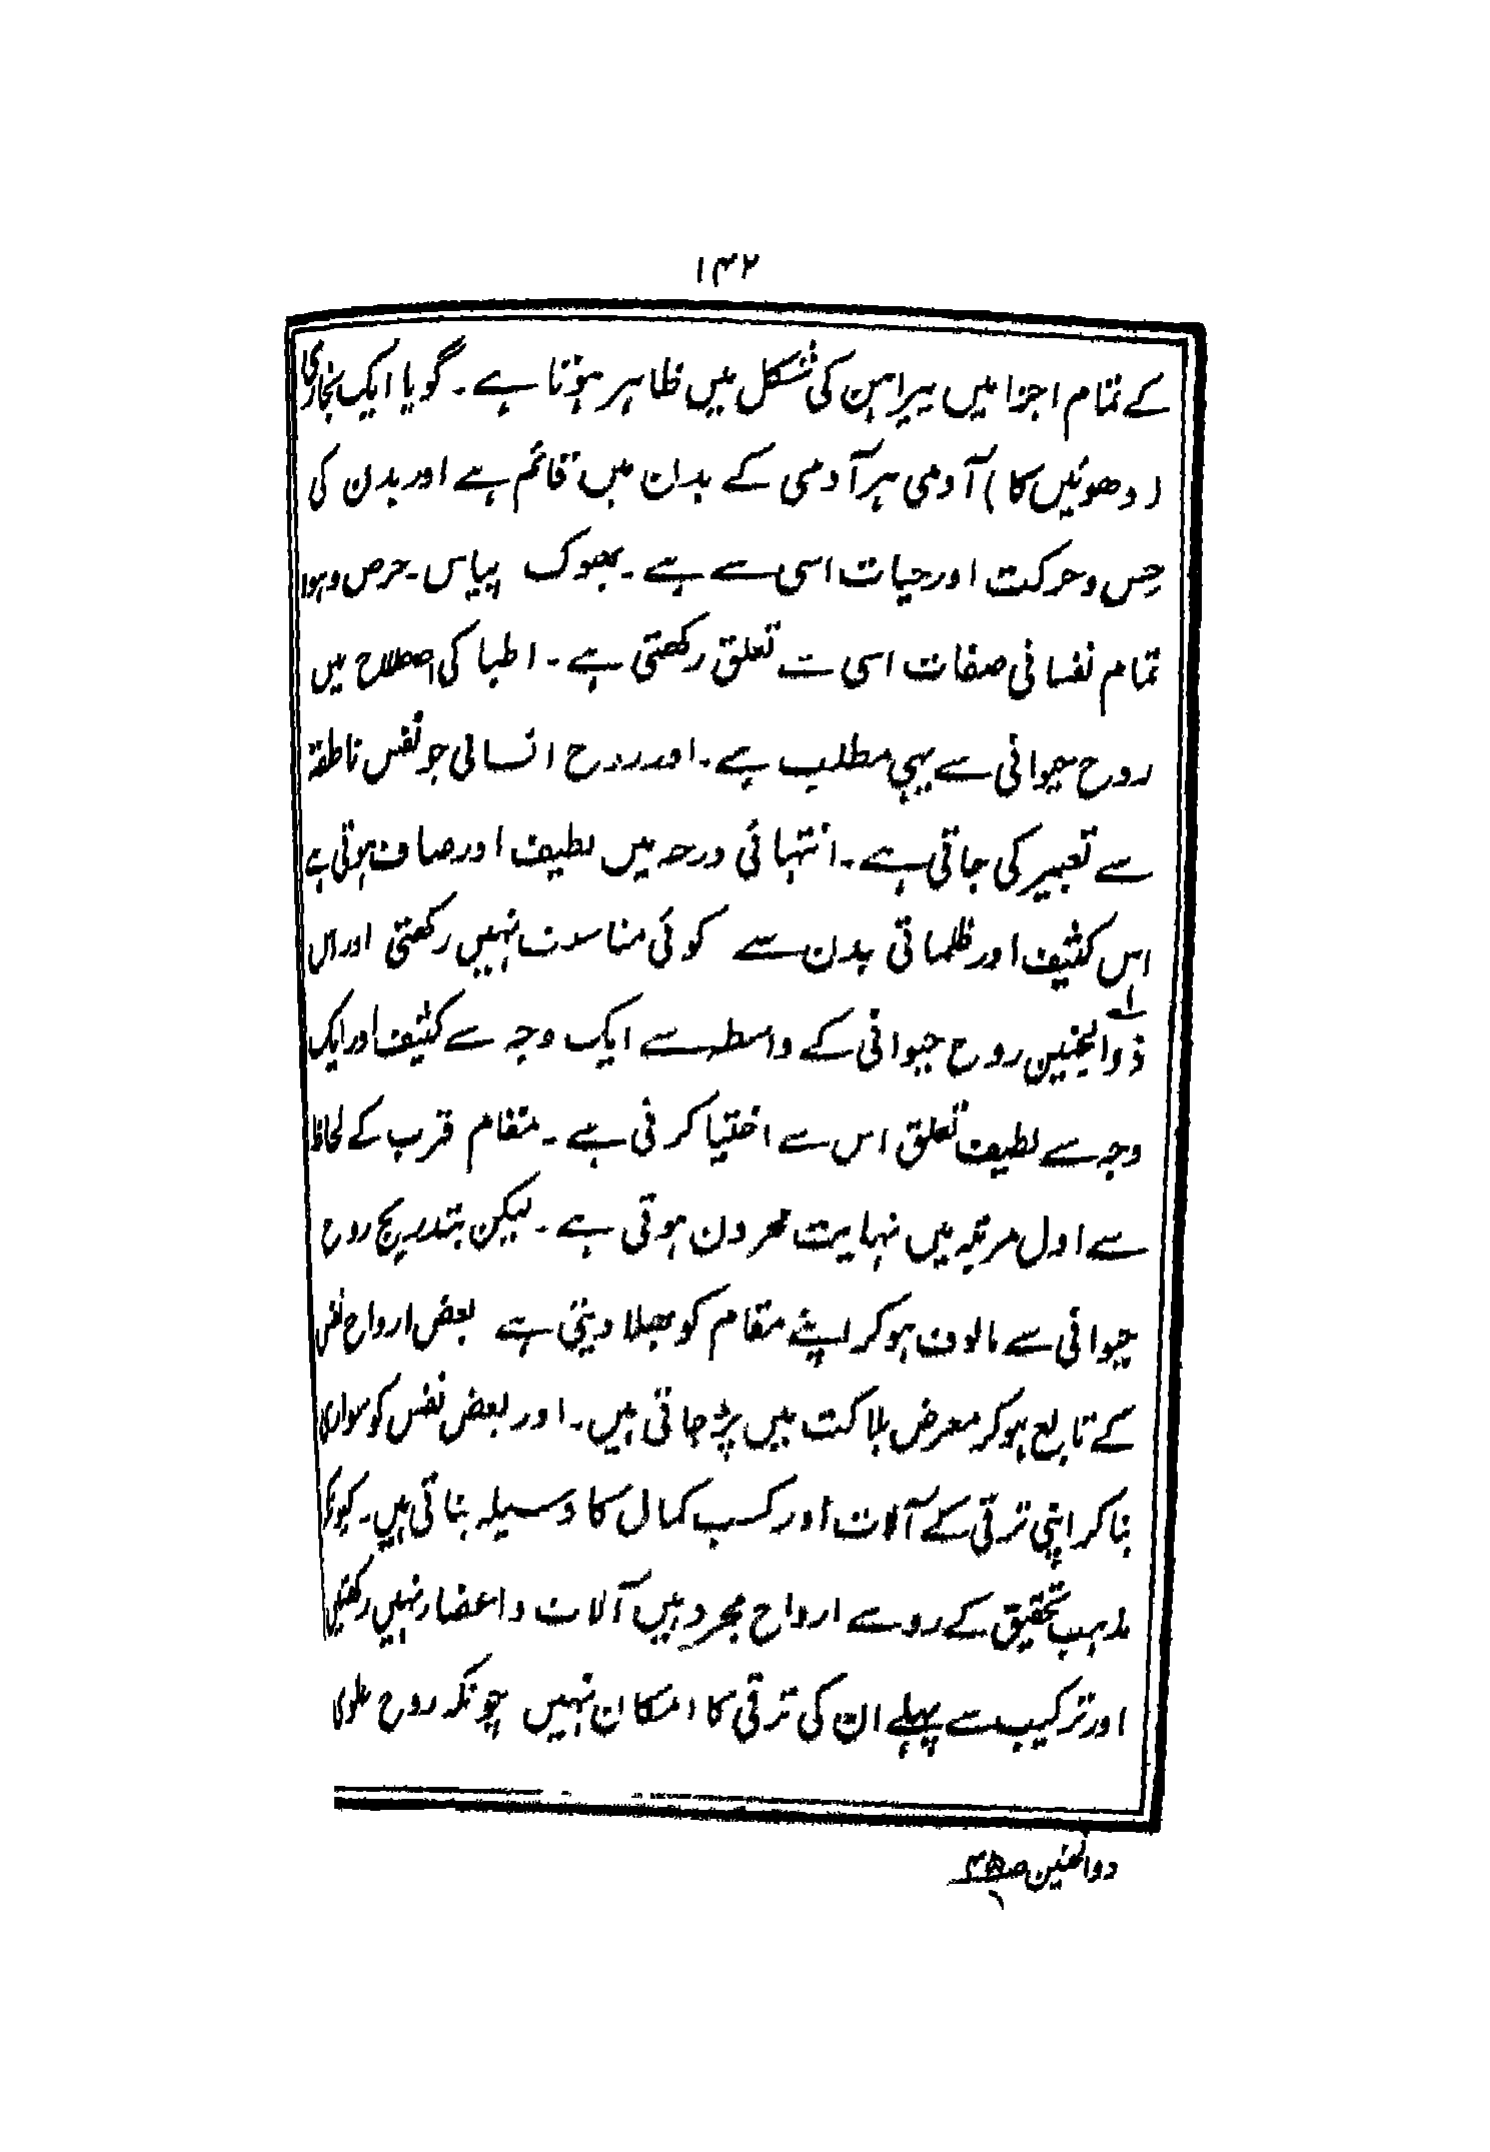 ۱۴۲
کے تمام اجزا میں پیراہن کی شکل میں ظاہر ہوتا ہے۔ گویا ایک بخاری
(دھوئیں کا) آدمی ہر آدمی کے بدن میں قائم ہے اور بدن کی
حِس و حرکت اور حیات اسی سے ہے۔ بھوک پیاس۔ حرص و ہوا
تمام نفسانی صفات اسی سے تعلق رکھتی ہے۔ اطبا کی اصطلاح میں
روح حیوانی سے یہی مطلب ہے۔ اور روح انسانی جو نفس ناطقہ
سے تعبیر کی جاتی ہے۔ انتہائی درجہ میں لطیف اور صاف ہوتی ہے
اس کثیف اور ظلماتی بدن سے کوئی مناسبت نہیں رکھتی اور اس
ذوالجنین روح حیوانی کے واسطہ سے ایک وجہ سے کثیف اور ایک
وجہ سے لطیف تعلق اس سے اختیا کرتی ہے۔ مقام قرب کے لحاظ
سے اول مرتبہ میں نہایت محزون ہوتی ہے۔ لیکن بتدریج روح
حیوانی سے مالوف ہو کر اپنے مقام کو بھلا دیتی ہے بعض ارواح نفس
کے تابع ہو کر معرض ہلاکت میں پڑ جاتی ہیں۔ اور بعض نفس کو سواری
بنا کر اپنی ترقی کے آلات اور کسب کمال کا وسیلہ بناتی ہیں۔ کیونکہ
مذہب تحقیق کے رو سے ارواح مجرد ہیں آلات و اعضاء نہیں رکھتیں
اور ترکیب سے پہلے ان کی ترقی کا امکان نہیں چونکہ روح علوی
ذوالجنین